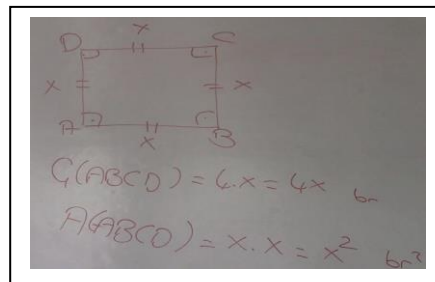 x
D C
x x
A B
x
Ç(ABCD) = 4.x = 4x br
A(ABCD) = x.x = x² br²